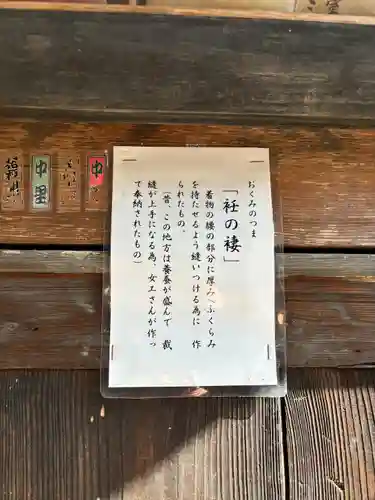 おくみのつま
「衽の褄」
着物の腰の部分に厚み/ふくらみ
を持たせるよう縫いつける為に 作
られたもの。
(昔、この地方は養蚕が盛んで 裁
縫が上手になる為、女工さんが作っ
て奉納されたもの)
中里
中